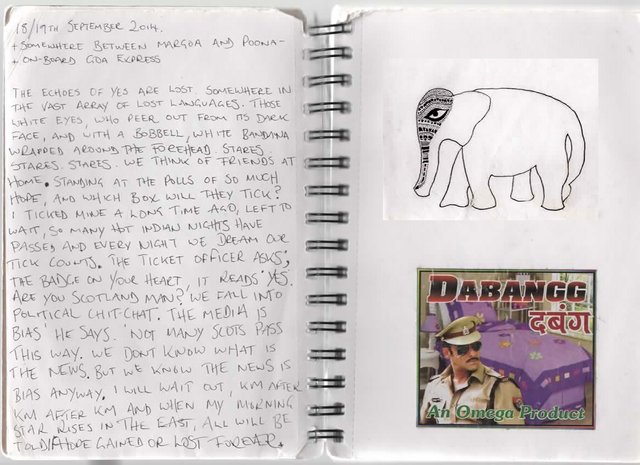 18/19TH SEPTEMBER 2014.
+SOMEWHERE BETWEEN MARGOA AND POONA-
~ ON-BOARD GOA EXPRESS
THE ECHOES OF YES ARE LOST. SOMEWHERE IN
THE VAST ARRAY OF LOST LANGUAGES. THOSE
WHITE EYES, WHO PEER OUT FROM ITS DARK
FACE, AND WITH A BOBBELL, WHITE BANDANA
WRAPPED AROUND THE FOREHEAD. STARES.
STARES. STARES. WE THINK OF FRIENDS AT
HOME. STANDING AT THE POLLS OF SO MUCH
HOPE, AND WHICH BOX WILL THEY TICK?
I TICKED MINE A LONG TIME AGO, LEFT TO
WAIT, SO MANY HOT INDIAN NIGHTS HAVE
PASSED AND EVERY NIGHT WE DREAM OUR
TICK COUNTS. THE TICKET OFFICER ASKS;
THE BADGE ON YOUR HEART, IT READS 'YES.
ARE YOU SCOTLAND MAN? WE FALL INTO
POLITICAL CHIT-CHAT. THE MEDIA IS
BIAS' HE SAYS. 'NOT MANY SCOTS PASS
THIS WAY. WE DONT KNOW WHAT IS
THE NEWS. BUT WE KNOW THE NEWS IS
BIAS ANYWAY. I WILL WAIT OUT, KM AFTER
KM AFTER KM AND WHEN MY MORNING
STAR RISES IN THE EAST, ALL WILL BE
TOLD. HOPE GAINED OR LOST FOREVER.
DABANGG
दबंग
An Omega Product